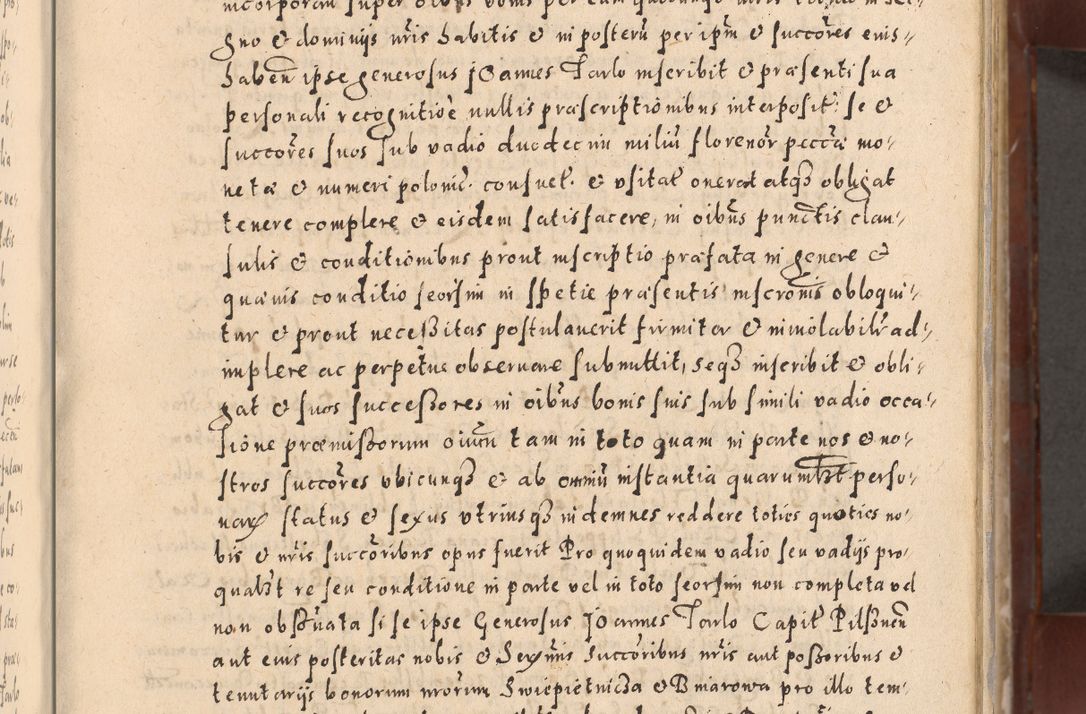 gno & dominijs nris habitis & in posterū per ipm̄ & succōres eius-
haben̄ ipse generosus Joannes Tarlo inscribit & præsenti sua
personali recognitioē nullis præscriptionibus interposit: se &
succōres suos sub vadio duodecim miliū florenor̄ peccæ mo-
netæ & numeri polonic. consuet. & vsitat onerat atqz obligat
tenere complere & eisdem satisfacere, in oibūs punctis clau-
sulis & conditionibus prout inscriptio præfata in genere &
quæuis conditio seorsim in spetie præsentis inscronis obloqui-
tur & prout neceßitas postulauerit firmiter & inuiolabilr ad-
implere ac perpetue obseruare submittit, seqz inscribit & obli-
gat & suos succeßores in oibūs bonis suis sub simili vadio occa-
sione præmißorum oium tam in toto quam in parte nos & no-
stros succōres vbicunqz & ab omniū instantia quarumlbt perso-
nar status & sexus vtriusqz indemnes reddere toties quoties no-
bis & nris succōribus opus fuerit Pro quoquidem vadio seu vadijs pro
qualbt re seu conditione in parte vel in toto seorsim non completa vel
non obseruata si se ipse Generosus Joannes Tarlo Capit Pilsznen
aut eius posteritas nobis & Sexniis Succōribus nris aut poßoribus &
tenutarijs bonorum nrorum Swiepietnicza & Bniarowa pro illo tem-